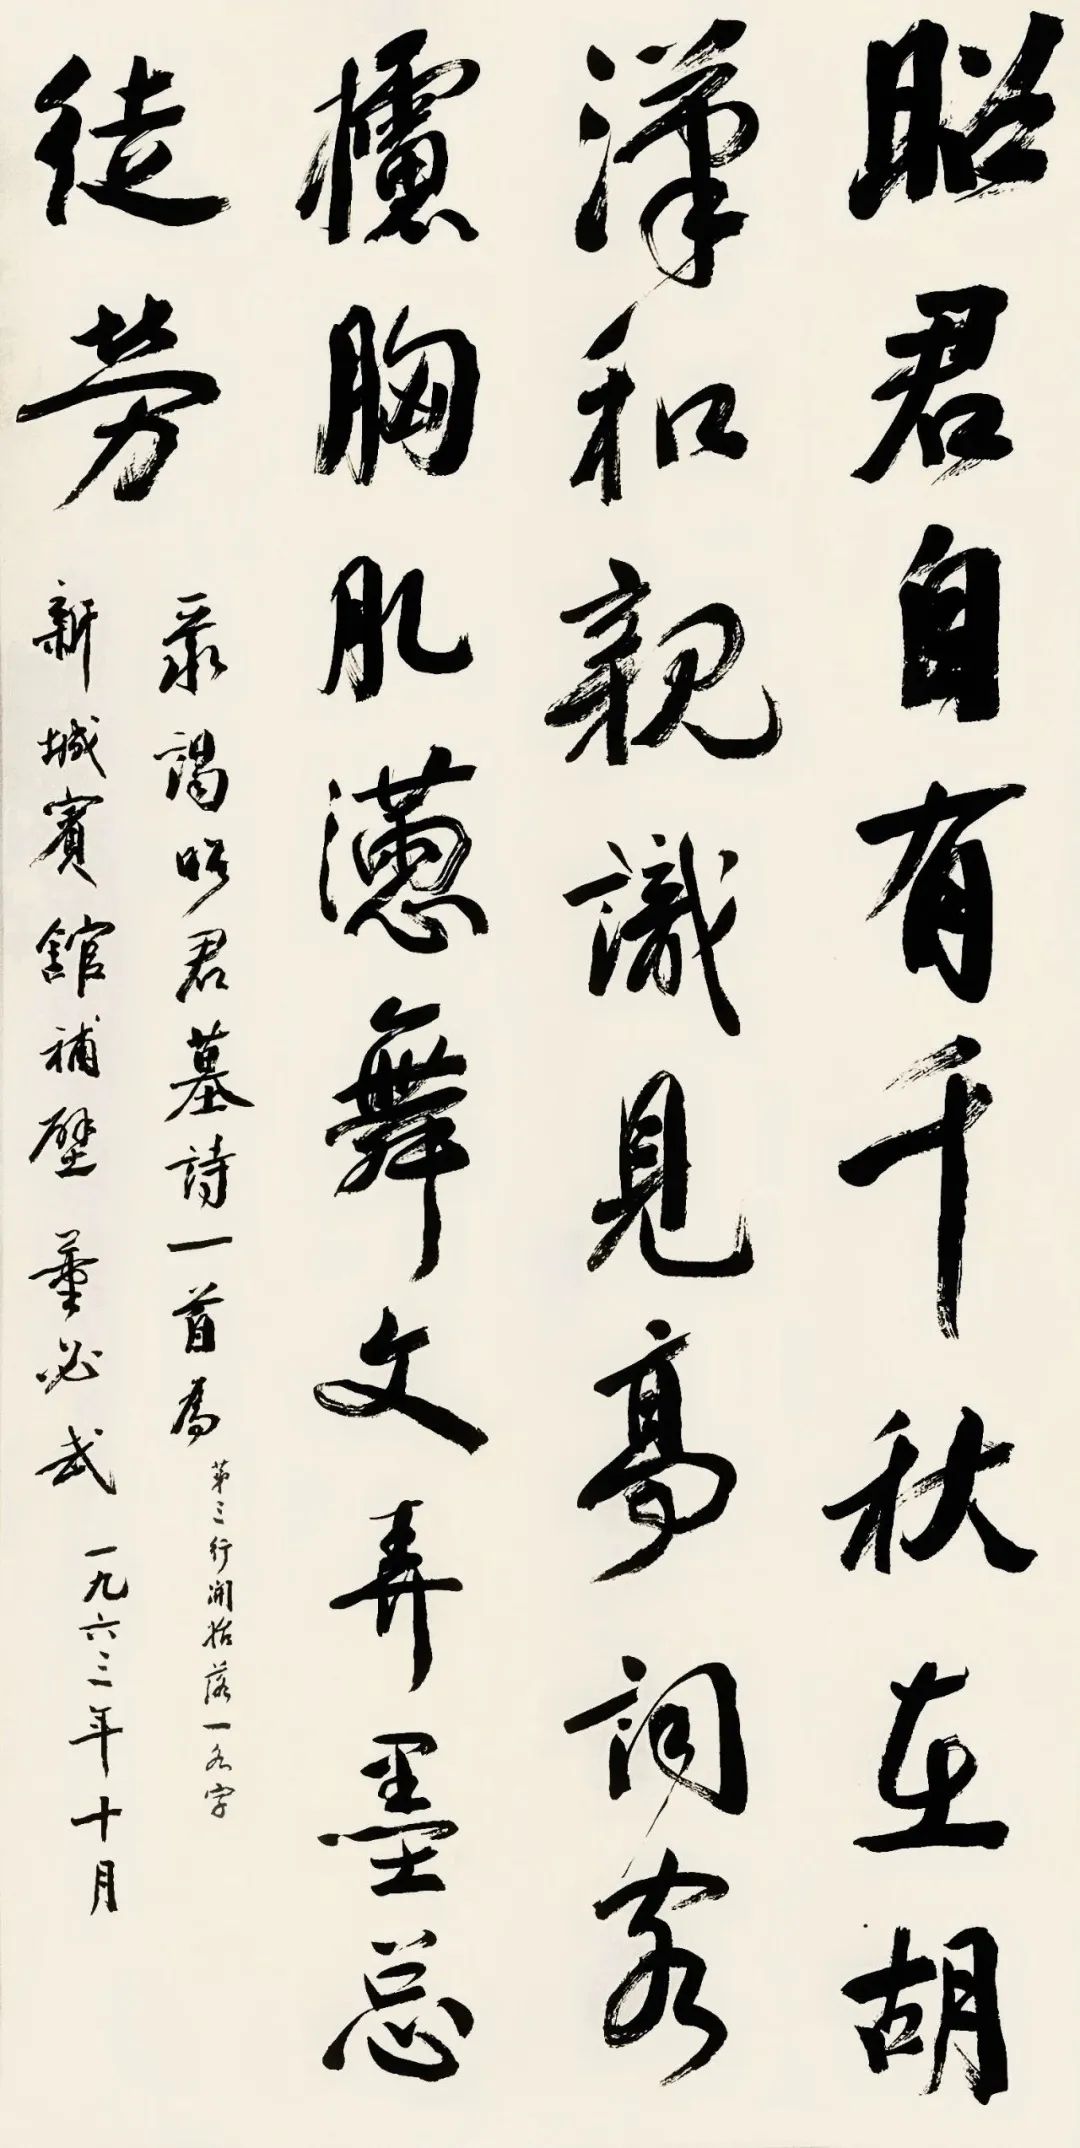 昭君自有千秋在胡
漢和親識見高詞客
攄胸肌懑舞文弄墨总
徒劳
录謁昭君墓詩一首為
第三行開始落一各字
新城賓館補壁 董必武
一九六三年十月